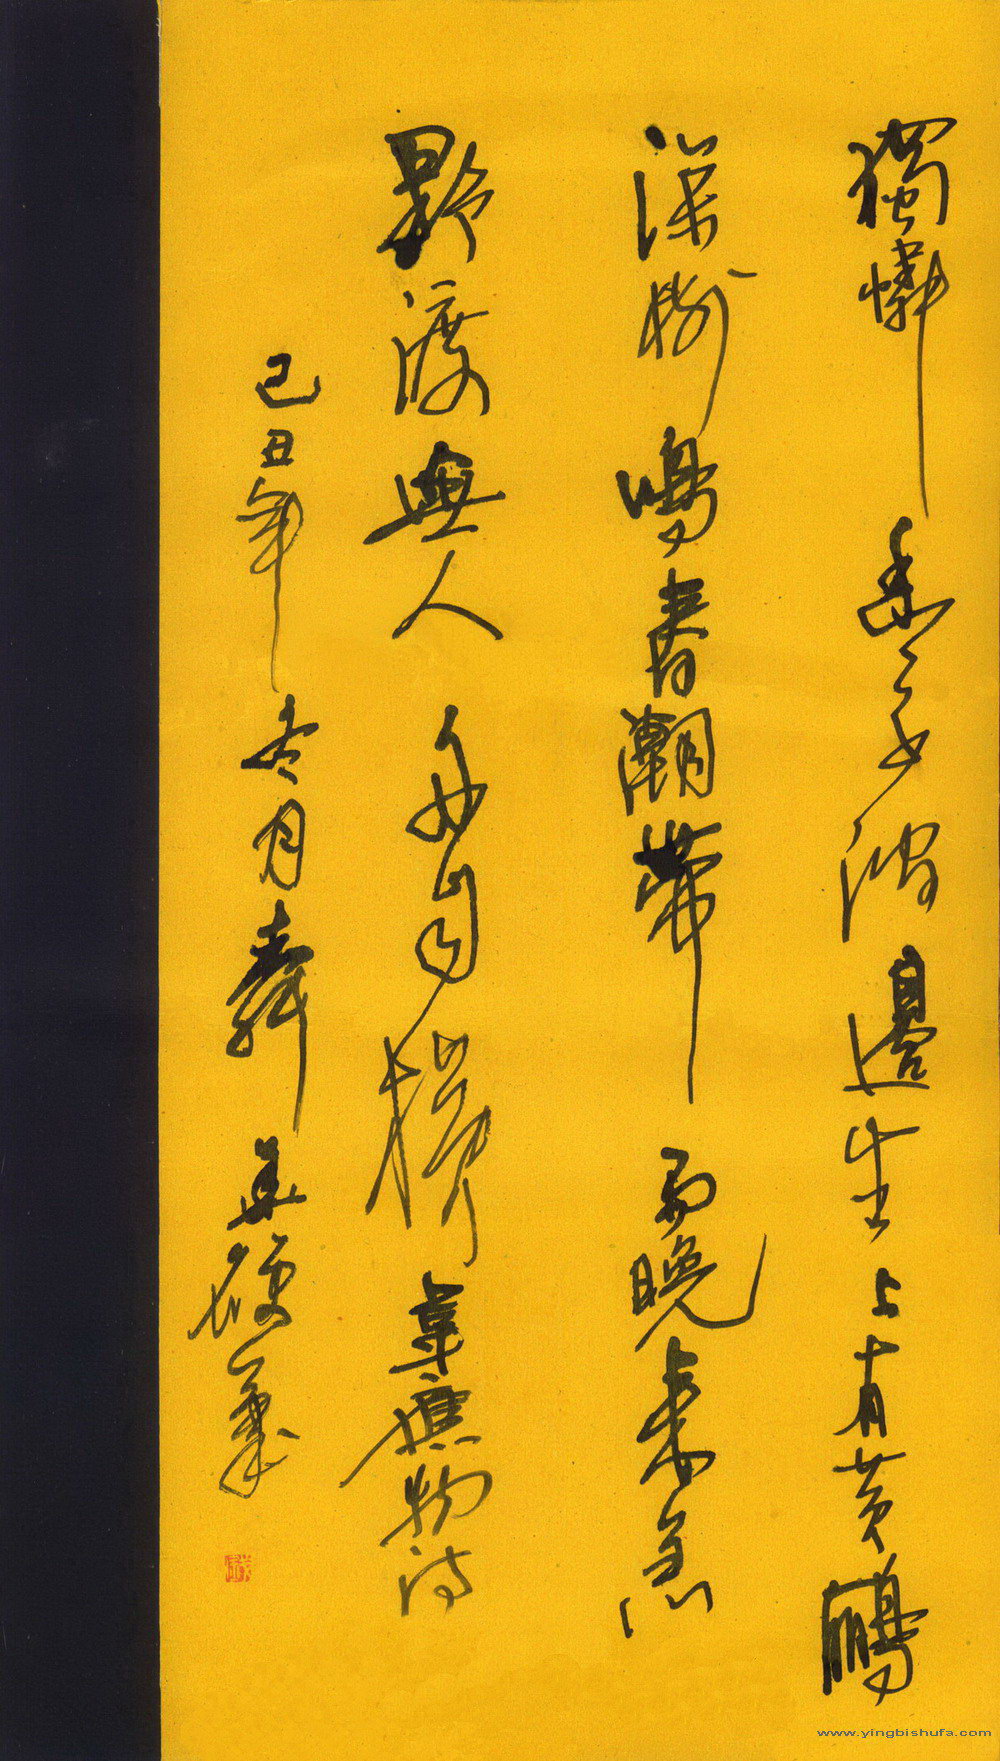 獨憐幽草澗邊生上有黃鸝
深樹鳴春潮帶雨晚來急
野渡無人舟自橫韋應物詩
己丑年冬月硬筆
www.yingbishufa.com